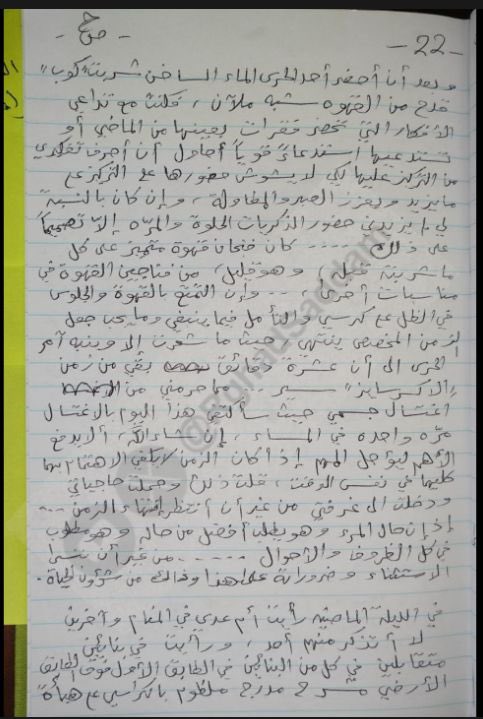 - 22 -
وبعد أن أحضر أحد الحرس الماء الساخن شربت "كوب"
قدح من القهوة شبه ملآن ، فكنت مع تداعي
الأفكار التي تحضر فقرات بعينها من الماضي أو
تستدعيها استدعاءً قوياً أحاول أن أصرف تفكيري
من التركيز عليها لكي لا يشوش حضورها على التركيز على
ما يزيد ويعزز الصبر والمطاولة ، وإن كان بالنسبة
لي ما يزيدني حضور الذكريات الحلوة والمرّه إلاّ تصميماً
على ذلك ..... كان فنجان قهوة متميز على كل
ما شربته قبله ، وهو قليل ، من فناجين القهوة في
مناسبات أخرى ... وإن التمتع بالقهوة والجلوس
في الظل على كرسي والتأمل فيما ينبغي وما يجب جعل
الزمن المخصص ينتهي ، حيث ما شعرت إلا وينبه آمر
الحرس الى أن عشرة دقائق بقي من زمن
"الاكسرسايز" مما حرمني من
اغتسال جسمي حيث سأكتفي هذا اليوم بالاغتسال
مرّه واحده في المساء ، إن شاء الله ، ألا يدفع
الأهم ليؤجل المهم إذا كان الزمن لا يكفي الاهتمام بهما
كليهما في نفس الوقت ، قلت ذلك وحملت حاجياتي
ودخلت الى غرفتي من غير أن أنتظر انتهاء الزمن ...
إذ إن حال المرء وهو يطلب أفضل من حاله وهو مطلوب
في كل الظروف والأحوال ..... من غير أن ننسى
الاستثناء وضروراته على هذا وذلك من شؤون الحياة .
في الليلة الماضية رأيت أم عدي في المنام وآخرين
لا أتذكر منهم أحد ، ورأيت في بنائين
متقابلين في كل من البنائين في الطابق الأول فوق الطابق
الأرضي مسرح مدرج منظوم بالكراسي على هيأة